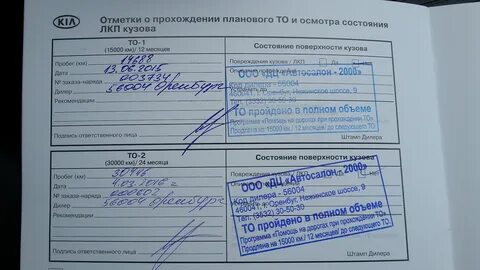 KIA
Отметки о прохождении планового ТО и осмотра состояния
ЛКП кузова
ТО-1
(15000 км)/ 12 месяцев
Пробег (км) 14688
Дата 13.06.2015
№ заказа-наряда 003734
Дилер 56004 Оренбург
Рекомендации
Подпись ответственного лица
Состояние поверхности кузова
Повреждения кузова / ЛКП Да Нет
ООО «ДЦ «Автосалон - 2000»
Код дилера - 56004
460041, г. Оренбург, Нежинское шоссе, 9
Тел. (3532) 30-50-30
ТО пройдено в полном объеме
Программа «Помощь на дорогах при прохождении ТО»
Продлена на 15000 км./ 12 месяцев/ до следующего ТО
Штамп Дилера
ТО-2
(30000 км)/ 24 месяца
Пробег (км) 30946
Дата
№ заказа-наряда
Дилер 56004 Оренбург
Рекомендации
Подпись ответственного лица
Состояние поверхности кузова
ООО «ДЦ «Автосалон - 2000»
Код дилера - 56004
460041, г. Оренбург, Нежинское шоссе, 9
Тел. (3532) 30-50-30
ТО пройдено в полном объеме
Программа «Помощь на дорогах при прохождении ТО»
Продлена на 15000 км./ 12 месяцев/ до следующего ТО
Штамп Дилера